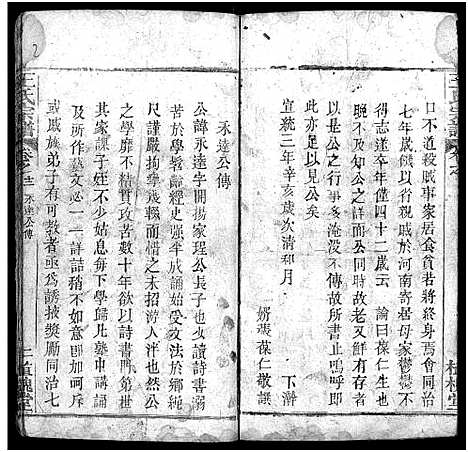 口不道殺賊事家居食貧若將終身焉會同治
七年歲饑以省親成於河南寄居母家鬱鬱不
得志遂卒年僅四十二歲云　論曰葆仁生也
晚不幸不知公之詳而公同時故老又鮮有存
以是公之行事多淹沒不傳故所書止此嗚呼即
此亦足以見公矣
宣統三年辛亥歲次清和月　下澣
婿張葆仁敬譔
永達公傳
公諱永達字開揚家珵公長子也少讀詩書溺
苦於學督經史強半成誦始受文法於鄉縄
尺謹嚴拘攣幾輟而惜之未招游人泮也然公
之學靡不精賁攻者數十年欲以詩書門第世
其家課子姪不少姑息每下學歸北墊中講誦
及所作藝文必一一詳詰稍不愜意如呵斥
或戚族弟子有可教者亟爲誘掖獎勵同治七
王氏宗譜
卷之
永達公傳
二 植槐堂
王氏宗譜
卷之
植槐堂